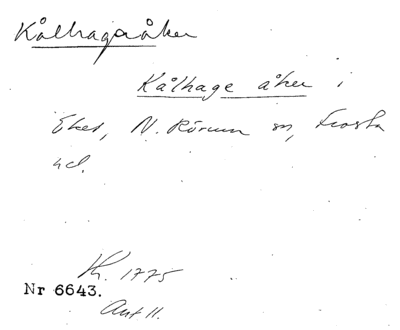 Kålhagaåker
Kålhage åker i
Eket, N. Rörum sn, Frosta
hd.
Kh. 1775
Nr 6643.
Avt 11.